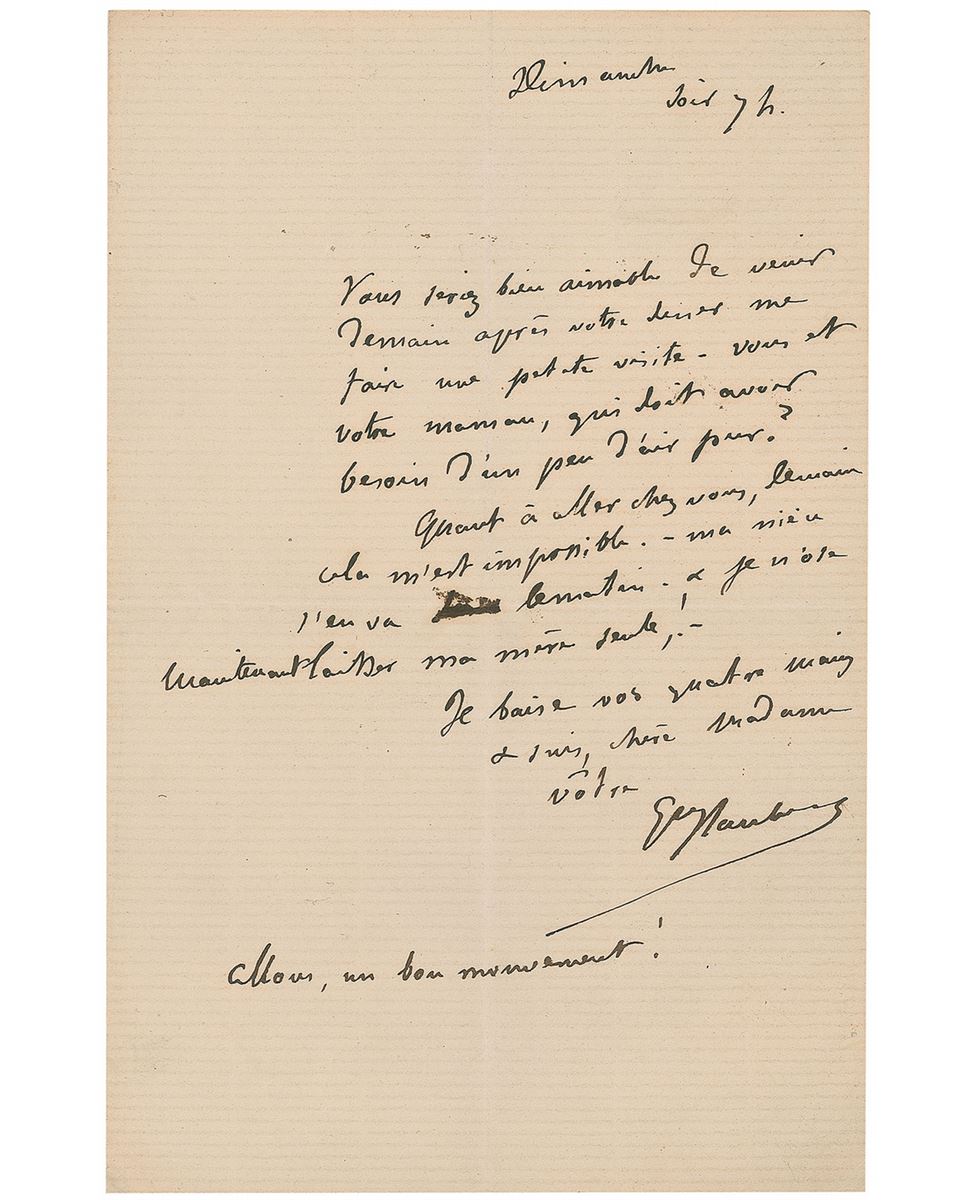 Dimanche
soir 7 h.
Vous seriez bien aimable de venir
demain après votre dîner me
faire une petite visite - vous et
votre maman, qui doit avoir
besoin d'un peu d'air pur?
Quant à aller chez vous, demain
cela m'est impossible. - ma nièce
s'en va le matin - & je n'ose
maintenant laisser ma mère seule! -
Je baise vos quatre mains
& suis, chère Madame
vôtre
Gve Flaubert
Allons, un bon mouvement!